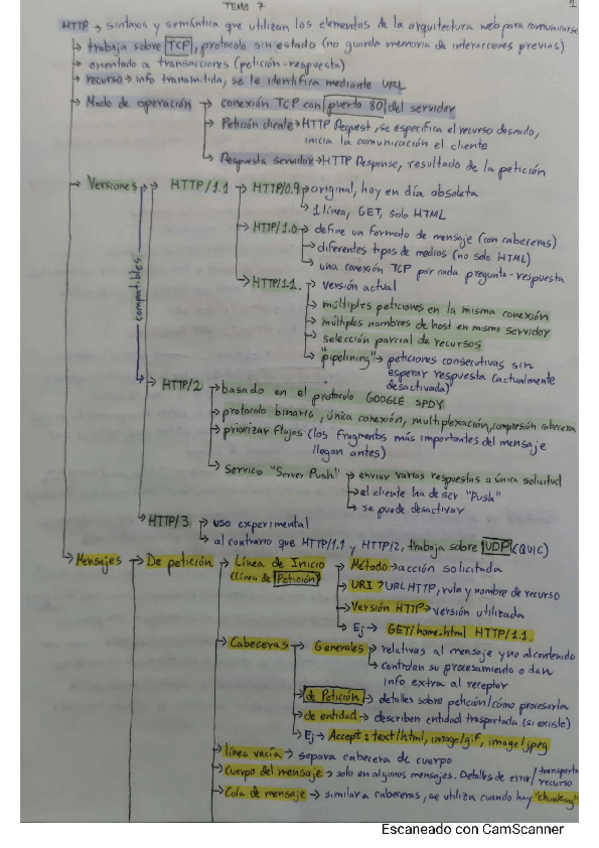 TEMA 7
1
HTTP → sintaxis y semántica que utilizan los elementos de la arquitectura web para comunicarse
→ trabaja sobre TCP, protocolo sin estado (no guarda memoria de interacciones previas)
→ orientado a transacciones (petición-respuesta)
→ recurso → info transmitida, se le identifica mediante URL
→ Modo de operación → conexión TCP con puerto 80 del servidor
→ Petición cliente → HTTP Request, se especifica el recurso deseado,
inicia la comunicación el cliente
→ Respuesta servidor → HTTP Response, resultado de la petición
→ Versiones → HTTP/1.1 → HTTP/0.9 → original, hoy en día obsoleta
→ 1 línea, GET, solo HTML
→ HTTP/1.0 → define un formato de mensaje (con cabeceras)
→ diferentes tipos de medios (no solo HTML)
→ una conexión TCP por cada pregunta-respuesta
compatibles
→ HTTP/1.1. → versión actual
→ múltiples peticiones en la misma conexión
→ múltples nombres de host en mismo servidor
→ selección parcial de recursos
→ "pipelining" → peticiones consecutivas sin
esperar respuesta (actualmente
desactivada)
→ HTTP/2 → basado en el protocolo GOOGLE SPDY
→ protocolo binario, única conexión, multiplexación, compresión cabecera
→ priorizar flujos (los fragmentos más importantes del mensaje
llegan antes)
→ Servicio "Server Push" → enviar varias respuestas a única solicitud
→ el cliente ha de ser "Push"
→ se puede desactivar
→ HTTP/3 → uso experimental
→ al contrario que HTTP/1.1 y HTTP/2, trabaja sobre UDP (QUIC)
→ Mensajes → De petición → Línea de Inicio → Método → acción solicitada
(línea de Petición) → URI → URL HTTP, ruta y nombre de recurso
→ Versión HTTP → versión utilizada
→ Ej → GET/home.html HTTP/1.1.
→ Cabeceras → Generales → relativas al mensaje y no al contenido
→ controlan su procesamiento o dan
info extra al receptor
→ de Petición → detalles sobre petición/cómo procesarla
→ de entidad → describen entidad trasportada (si existe)
→ Ej → Accept: text/html, image/gif, image/jpeg
→ línea vacía → separa cabecera de cuerpo
→ Cuerpo del mensaje → solo en algunos mensajes. Detalles de error/transporta recurso
→ Cola de mensaje → similar a cabeceras, se utiliza cuando hay "chunking"
Escaneado con CamScanner